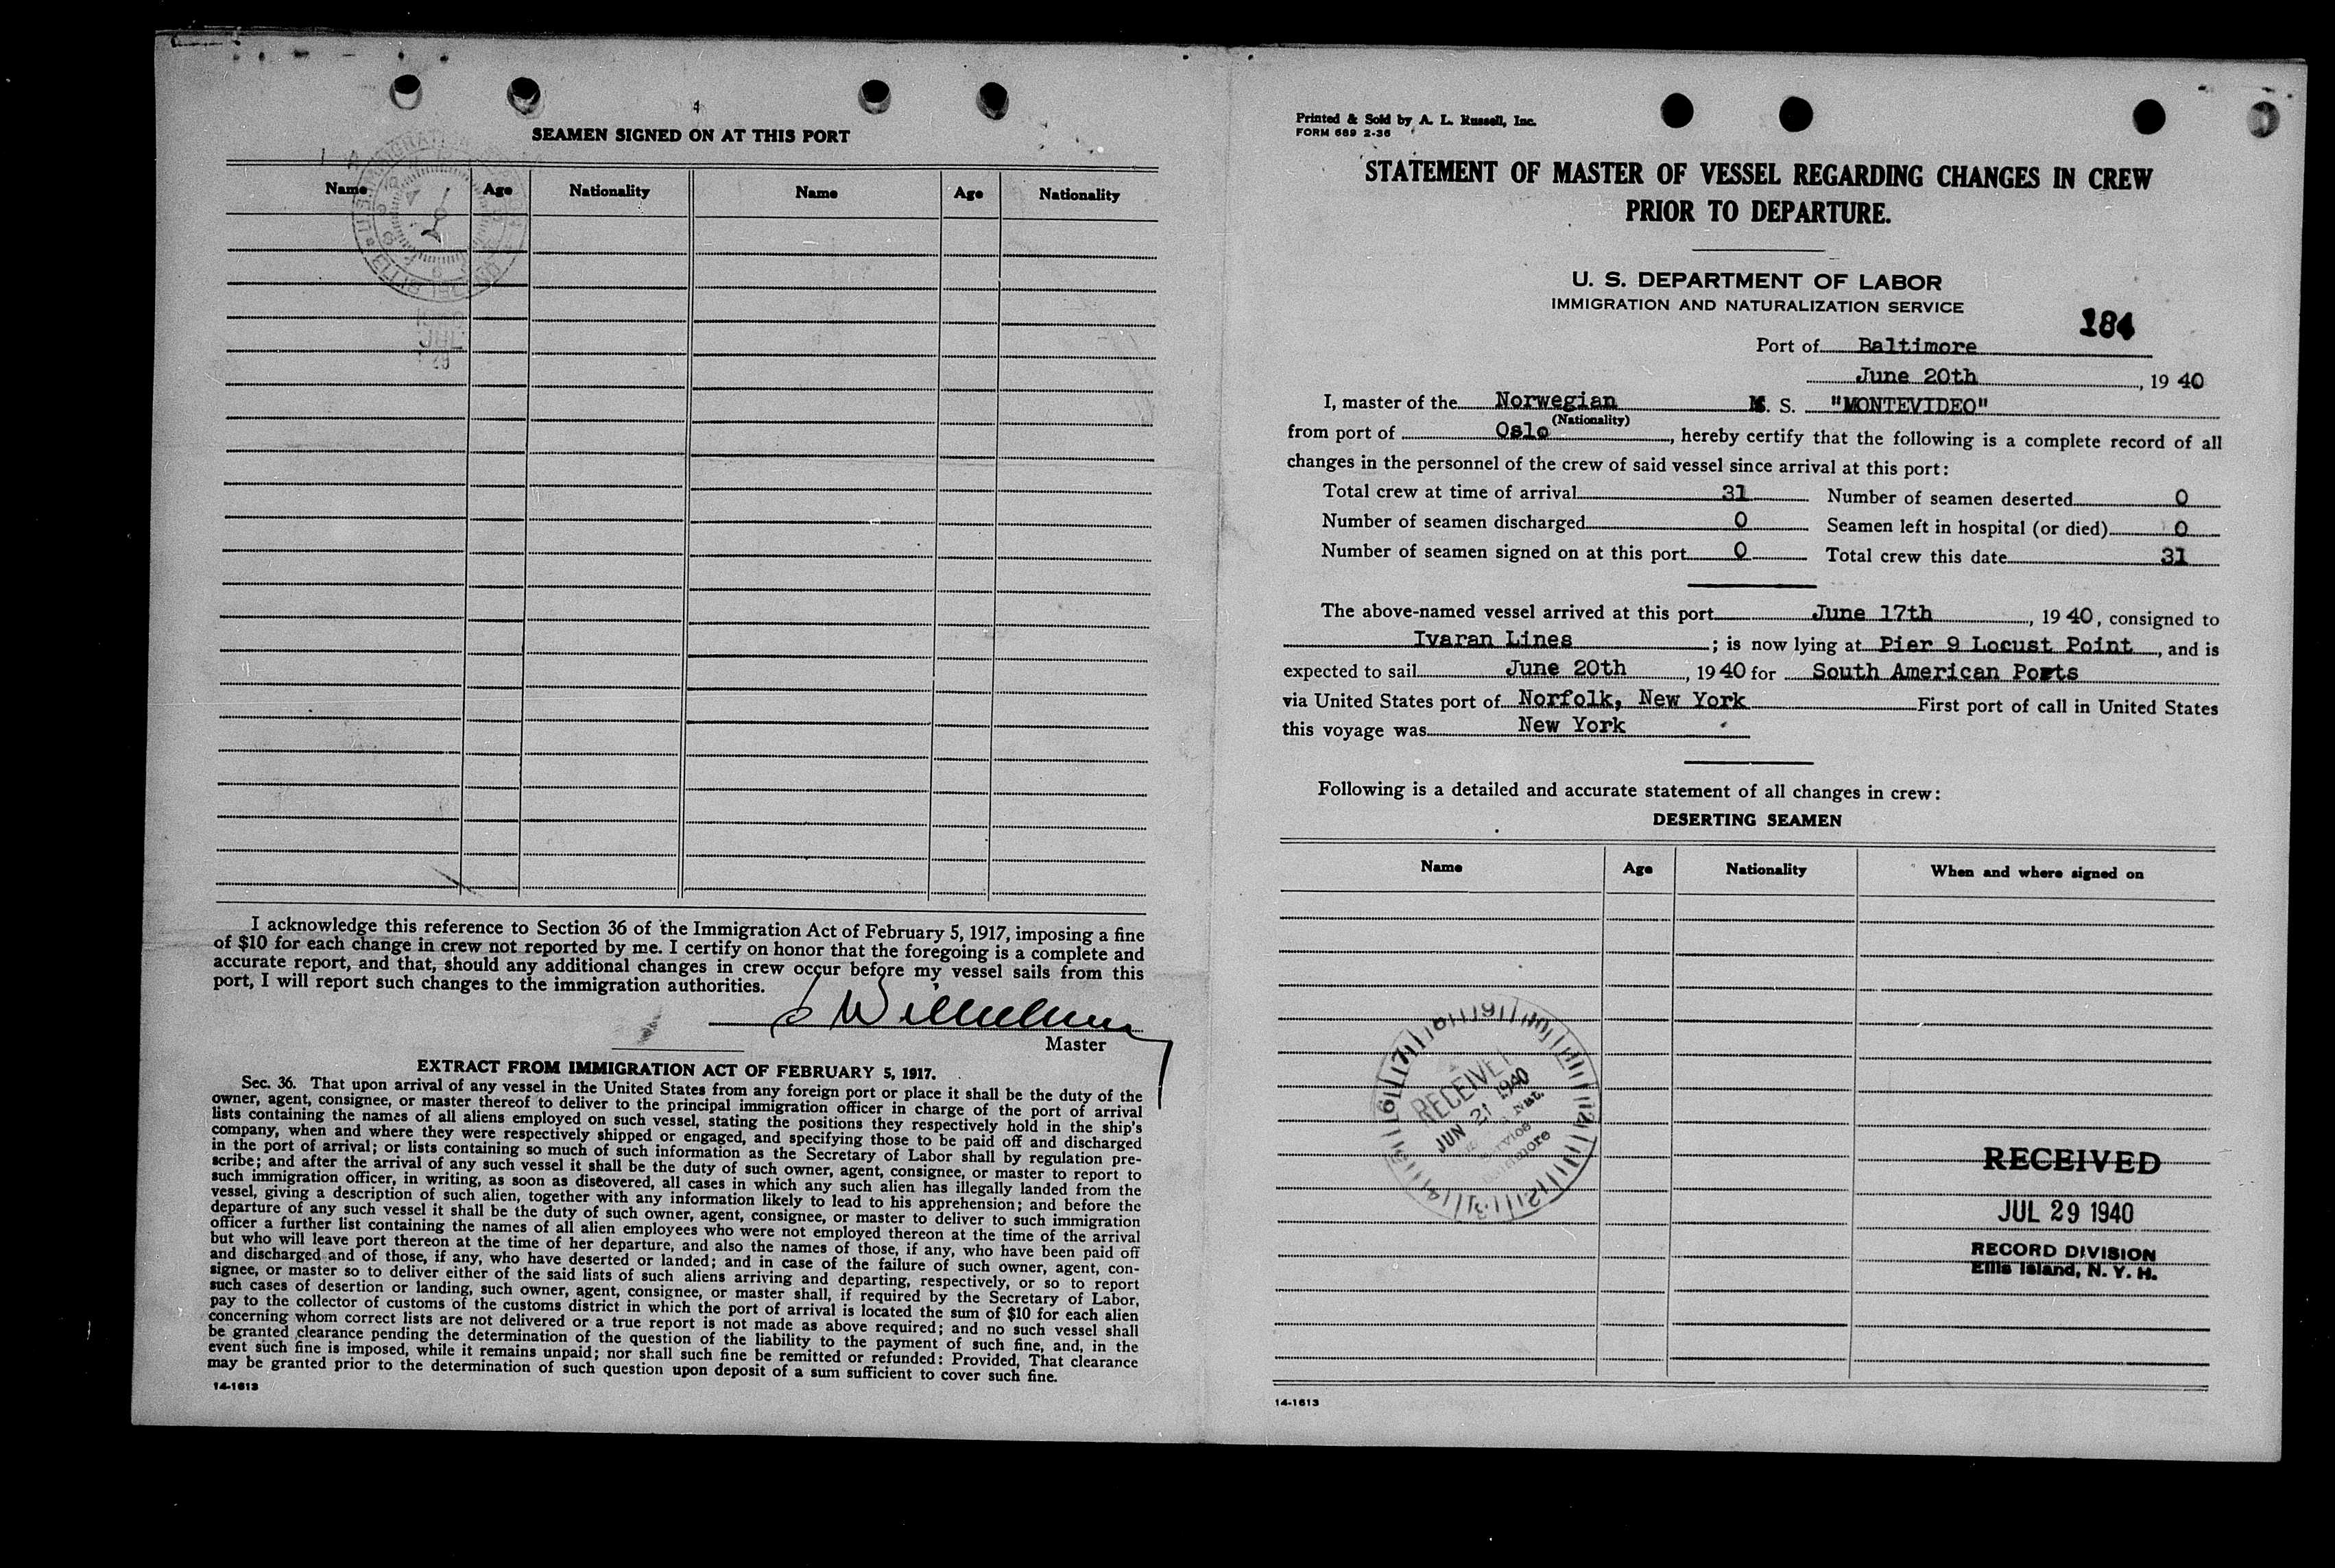 SEAMEN SIGNED ON AT THIS PORT
Name Age Nationality Name Age Nationality
JUL
I acknowledge this reference to Section 36 of the Immigration Act of February 5, 1917, imposing a fine
of $10 for each change in crew not reported by me. I certify on honor that the foregoing is a complete and
accurate report, and that, should any additional changes in crew occur before my vessel sails from this
port, I will report such changes to the immigration authorities.
Master
EXTRACT FROM IMMIGRATION ACT OF FEBRUARY 5, 1917.
Sec. 36. That upon arrival of any vessel in the United States from any foreign port or place it shall be the duty of the
owner, agent, consignee, or master thereof to deliver to the principal immigration officer in charge of the port of arrival
lists containing the names of all aliens employed on such vessel, stating the positions they respectively hold in the ship's
company, when and where they were respectively shipped or engaged, and specifying those to be paid off and discharged
in the port of arrival; or lists containing so much of such information as the Secretary of Labor shall by regulation pre-
scribe; and after the arrival of any such vessel it shall be the duty of such owner, agent, consignee, or master to report to
such immigration officer, in writing, as soon as discovered, all cases in which any such alien has illegally landed from the
vessel, giving a description of such alien, together with any information likely to lead to his apprehension; and before the
departure of any such vessel it shall be the duty of such owner, agent, consignee, or master to deliver to such immigration
officer a further list containing the names of all alien employees who were not employed thereon at the time of the arrival
but who will leave port thereon at the time of her departure, and also the names of those, if any, who have been paid off
and discharged and of those, if any, who have deserted or landed; and in case of the failure of such owner, agent, con-
signee, or master so to deliver either of the said lists of such aliens arriving and departing, respectively, or so to report
such cases of desertion or landing, such owner, agent, consignee, or master shall, if required by the Secretary of Labor,
pay to the collector of customs of the customs district in which the port of arrival is located the sum of $10 for each alien
concerning whom correct lists are not delivered or a true report is not made as above required; and no such vessel shall
be granted clearance pending the determination of the question of the liability to the payment of such fine, and, in the
event such fine is imposed, while it remains unpaid; nor shall such fine be remitted or refunded: Provided, That clearance
may be granted prior to the determination of such question upon deposit of a sum sufficient to cover such fine.
14-1613
Printed & Sold by A. L. Russell, Inc.
FORM 689 2-36
STATEMENT OF MASTER OF VESSEL REGARDING CHANGES IN CREW
PRIOR TO DEPARTURE.
U. S. DEPARTMENT OF LABOR
IMMIGRATION AND NATURALIZATION SERVICE
184
Port of Baltimore
June 20th, 1940
I, master of the Norwegian M. S. "MONTEVIDEO"
(Nationality)
from port of Oslo, hereby certify that the following is a complete record of all
changes in the personnel of the crew of said vessel since arrival at this port:
Total crew at time of arrival 31 Number of seamen deserted 0
Number of seamen discharged 0 Seamen left in hospital (or died) 0
Number of seamen signed on at this port 0 Total crew this date 31
The above-named vessel arrived at this port June 17th, 1940, consigned to
Ivaran Lines; is now lying at Pier 9 Locust Point, and is
expected to sail June 20th, 1940 for South American Ports
via United States port of Norfolk, New York First port of call in United States
this voyage was New York
Following is a detailed and accurate statement of all changes in crew:
DESERTING SEAMEN
Name Age Nationality When and where signed on
RECEIVED
JUN 21 1940
RECEIVED
JUL 29 1940
RECORD DIVISION
Ellis Island, N. Y. H.
14-1613